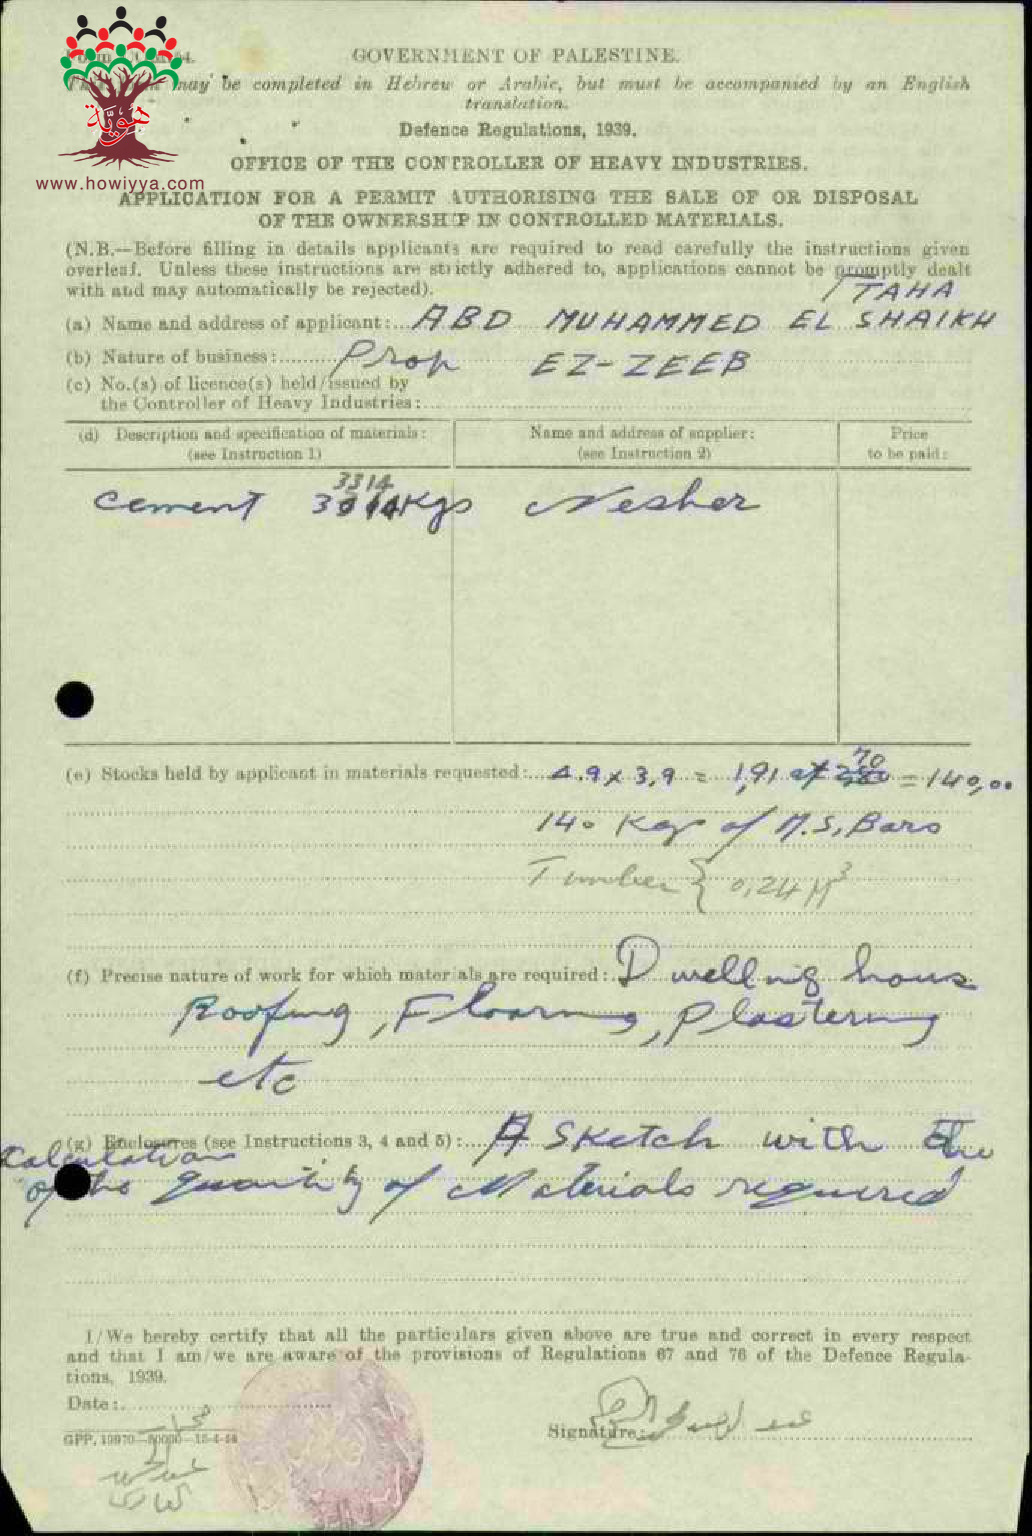 هوية
www.howiyya.com
GOVERNMENT OF PALESTINE.
may be completed in Hebrew or Arabic, but must be accompanied by an English
translation.
Defence Regulations, 1939.
OFFICE OF THE CONTROLLER OF HEAVY INDUSTRIES.
APPLICATION FOR A PERMIT AUTHORISING THE SALE OF OR DISPOSAL
OF THE OWNERSHIP IN CONTROLLED MATERIALS.
(N.B.—Before filling in details applicants are required to read carefully the instructions given
overleaf. Unless these instructions are strictly adhered to, applications cannot be promptly dealt
with and may automatically be rejected).
TAHA
(a) Name and address of applicant: ABD MUHAMMED EL SHAIKH
(b) Nature of business: Prop EZ-ZEEB
(c) No.(s) of licence(s) held/issued by
the Controller of Heavy Industries:
(d) Description and specification of materials: Name and address of supplier: Price
(see Instruction 1) (see Instruction 2) to be paid:
3314
Cement Kgs Nesher
(e) Stocks held by applicant in materials requested: 4.9 x 3,9 = 1,91 of 70 = 140,00
140 Kgs of M.S, Bars
Timber } 0,24 M³
(f) Precise nature of work for which materials are required: Dwelling house
Roofing, Flooring, Plastering
etc
(g) Enclosures (see Instructions 3, 4 and 5): A Sketch with the
Calculations
of the quantity of Materials required
I/We hereby certify that all the particulars given above are true and correct in every respect
and that I am/we are aware of the provisions of Regulations 67 and 76 of the Defence Regula-
tions, 1939.
Date:
Signature:
GPP.